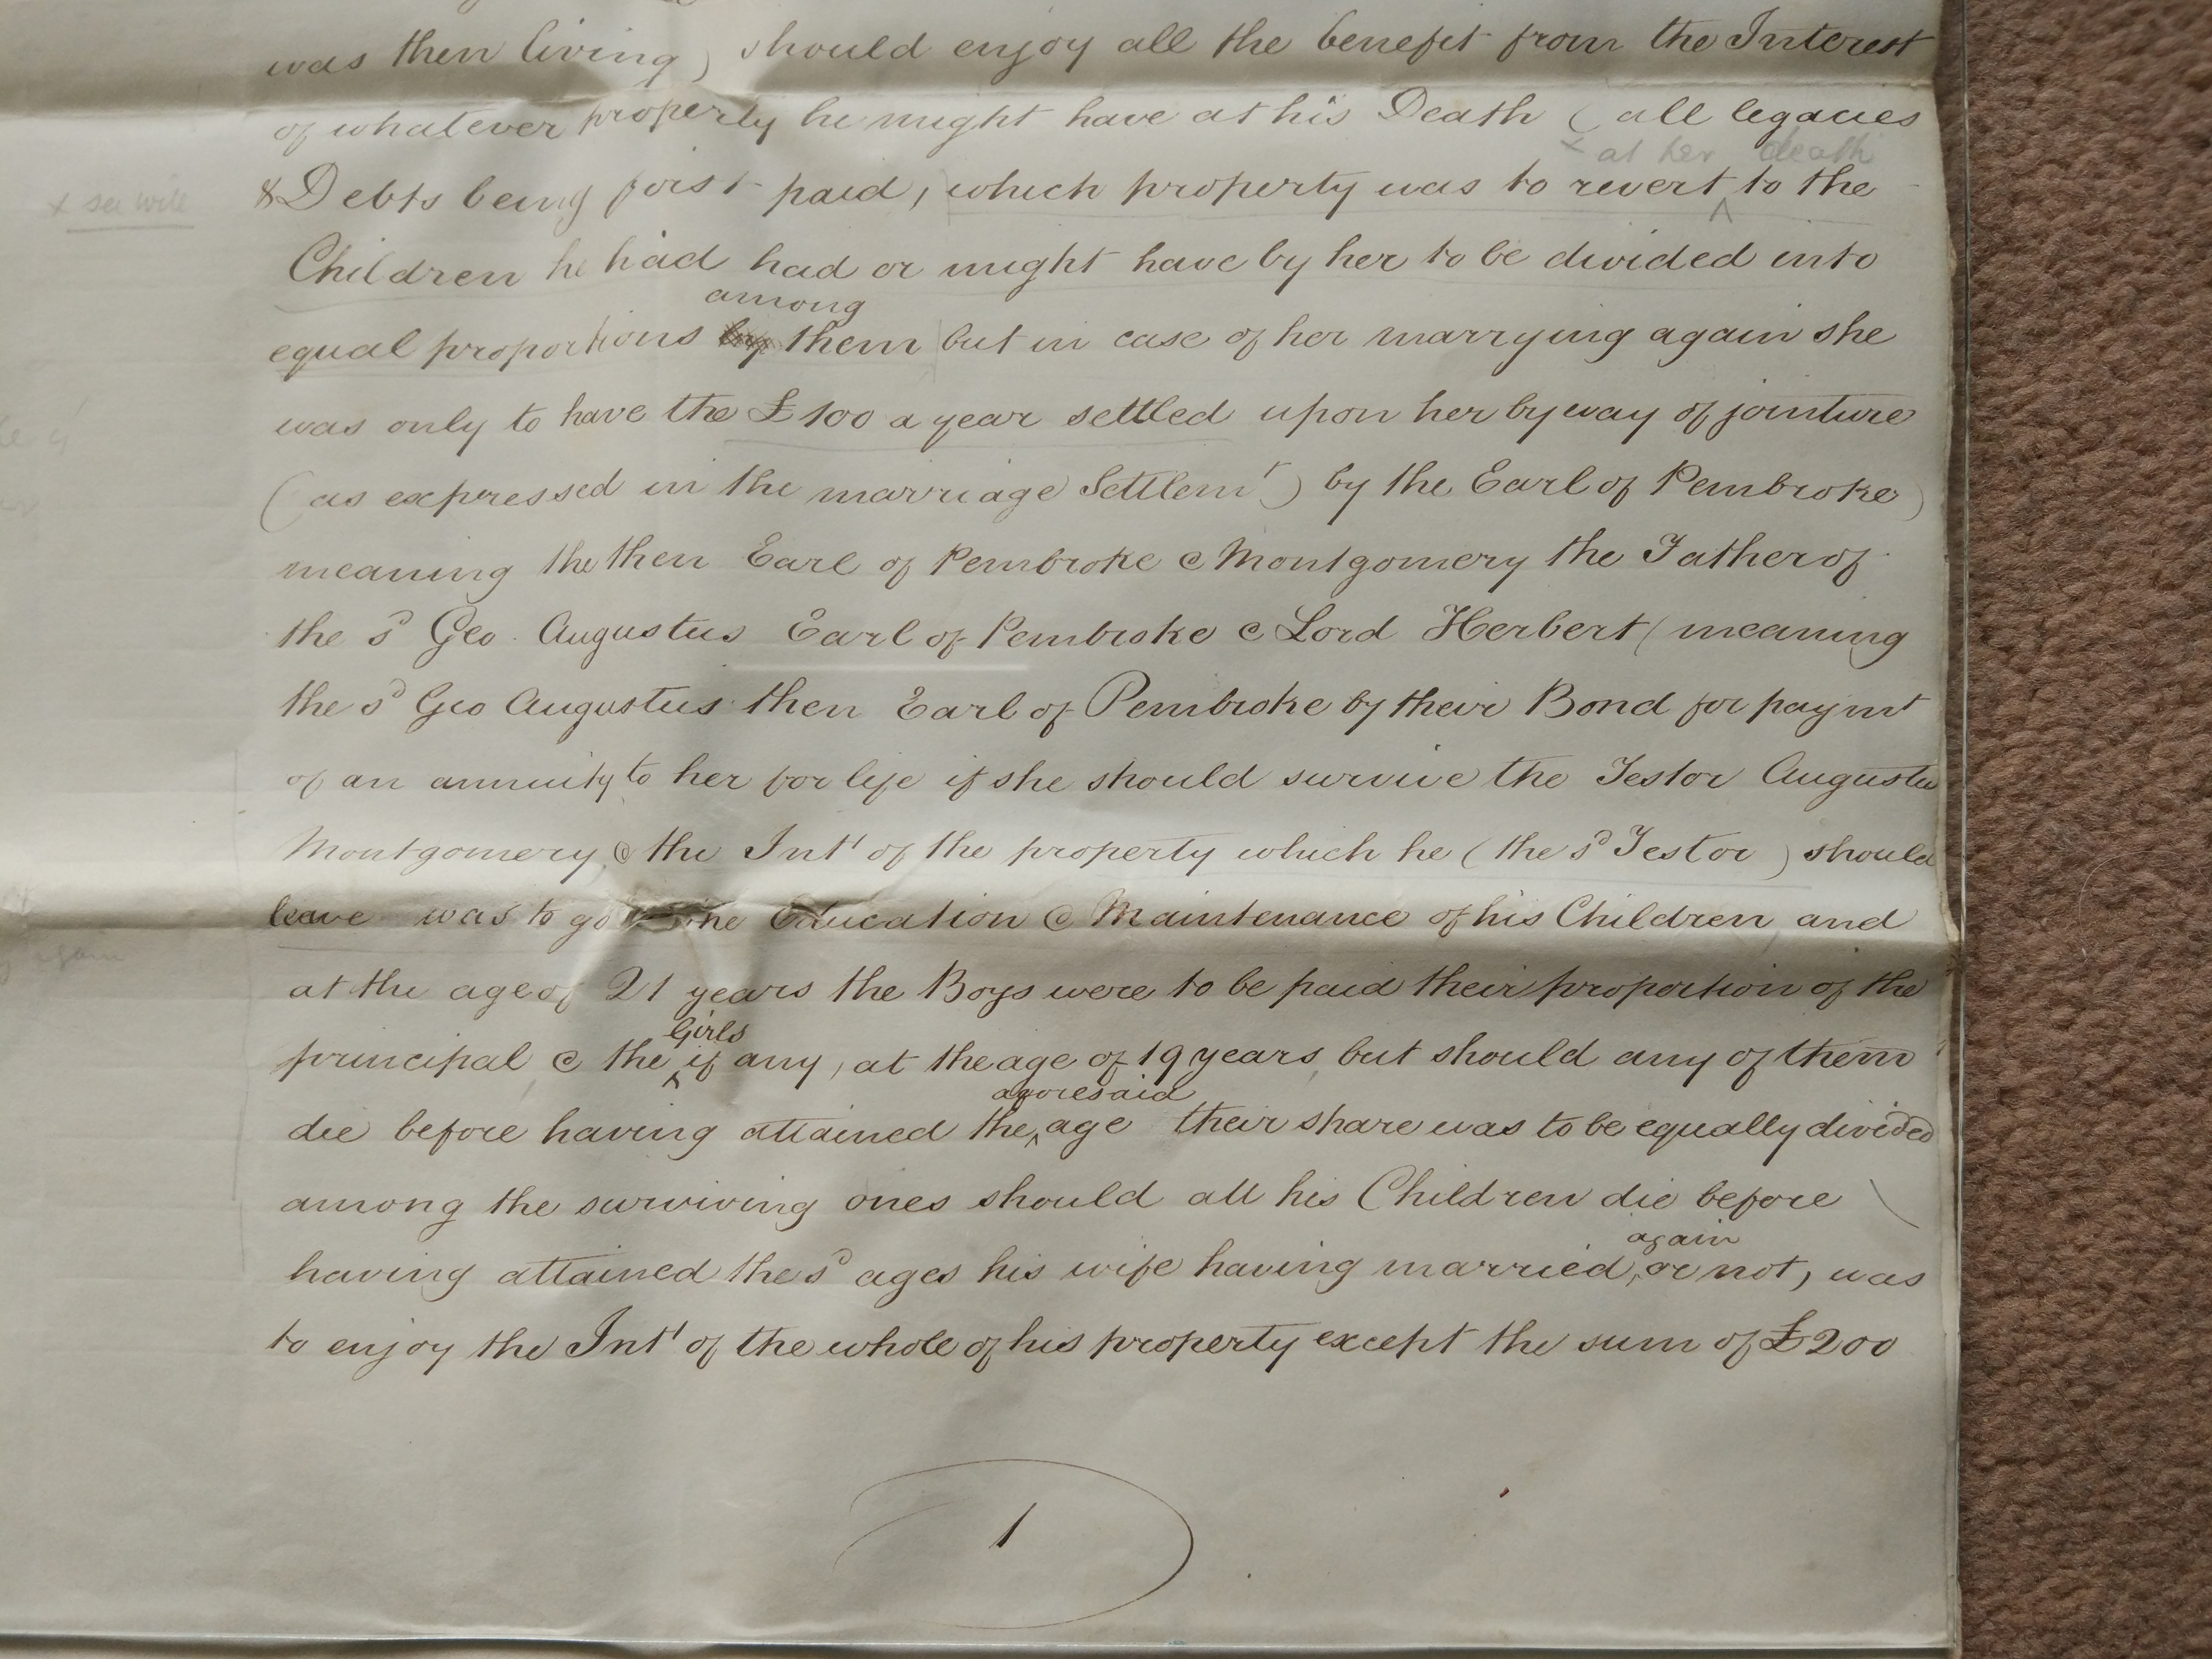 was then living) should enjoy all the benefit from the Interest
of whatever property he might have at his Death (all legacies
x at her death
x see will
& Debts being first paid, which property was to revert ^ to the
Children he had had or might have by her to be divided into
among
equal proportions by them but in case of her marrying again she
was only to have the £100 a year settled upon her by way of jointure
(as expressed in the marriage Settlemt) by the Earl of Pembroke)
meaning the then Earl of Pembroke & Montgomery the Father of
the sd Geo. Augustus Earl of Pembroke & Lord Herbert (meaning
the sd Geo Augustus then Earl of Pembroke by their Bond for paymt
of an annuity to her for life if she should survive the Testor Augustus
Montgomery & the Intt of the property which he (the sd Testor) should
leave was to go the Education & Maintenance of his Children and
again
at the age of 21 years the Boys were to be paid their proportion of the
Girls
principal & the ^ if any, at the age of 19 years but should any of them
aforesaid
die before having attained the ^ age their share was to be equally divided
among the surviving ones should all his Children die before
again
having attained the sd ages his wife having married, or not, was
to enjoy the Intt of the whole of his property except the sum of £200
1